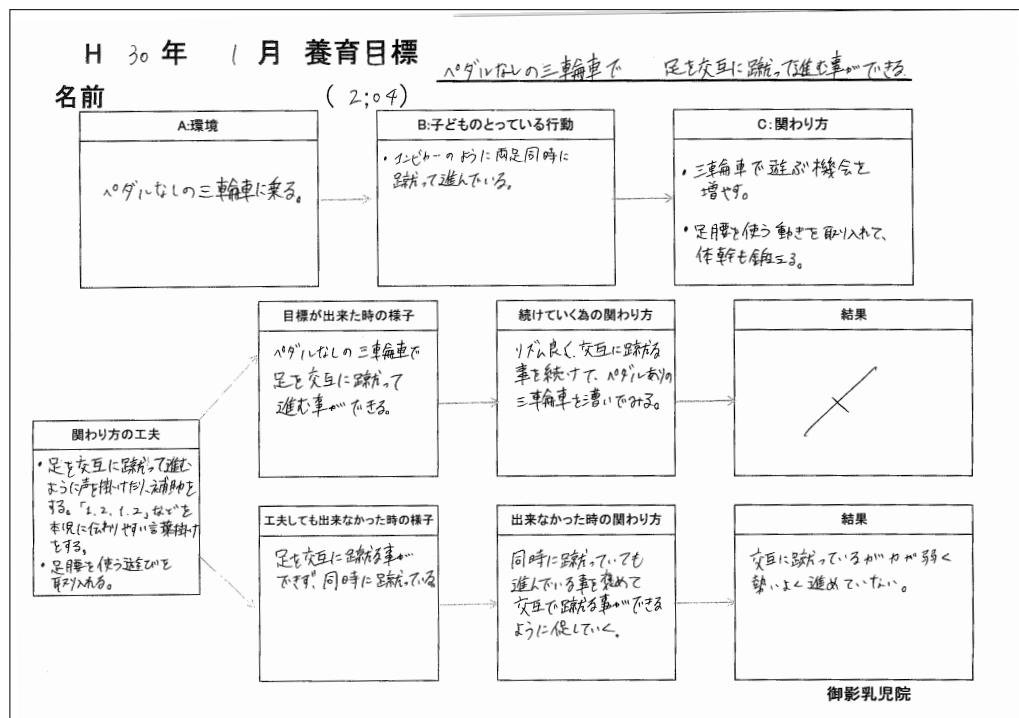 H 30 年 1 月 養育目標 ペダルなしの三輪車で 足を交互に蹴って進む事ができる
名前 (2;04)
A:環境
ペダルなしの三輪車に乗る。
B:子どものとっている行動
・コンビカーのように両足同時に
蹴って進んでいる。
C:関わり方
・三輪車で遊ぶ機会を
増やす。
・足腰を使う動きを取り入れて、
体幹も鍛える。
関わり方の工夫
・足を交互に蹴って進む
ように声を掛けたり、補助を
する。「1.2.1.2」などを
本児に伝わりやすい言葉掛け
をする。
・足腰を使う遊びを
取り入れる。
目標が出来た時の様子
ペダルなしの三輪車で
足を交互に蹴って
進む事ができる。
続けていく為の関わり方
リズム良く、交互に蹴る
事を続けて、ペダルありの
三輪車を漕いでみる。
結果
工夫しても出来なかった時の様子
足を交互に蹴る事が
できず、同時に蹴っている
出来なかった時の関わり方
同時に蹴っていても
進んでいる事を褒めて
交互で蹴る事ができる
ように促していく。
結果
交互に蹴っているが力が弱く
勢いよく進めていない。
御影乳児院